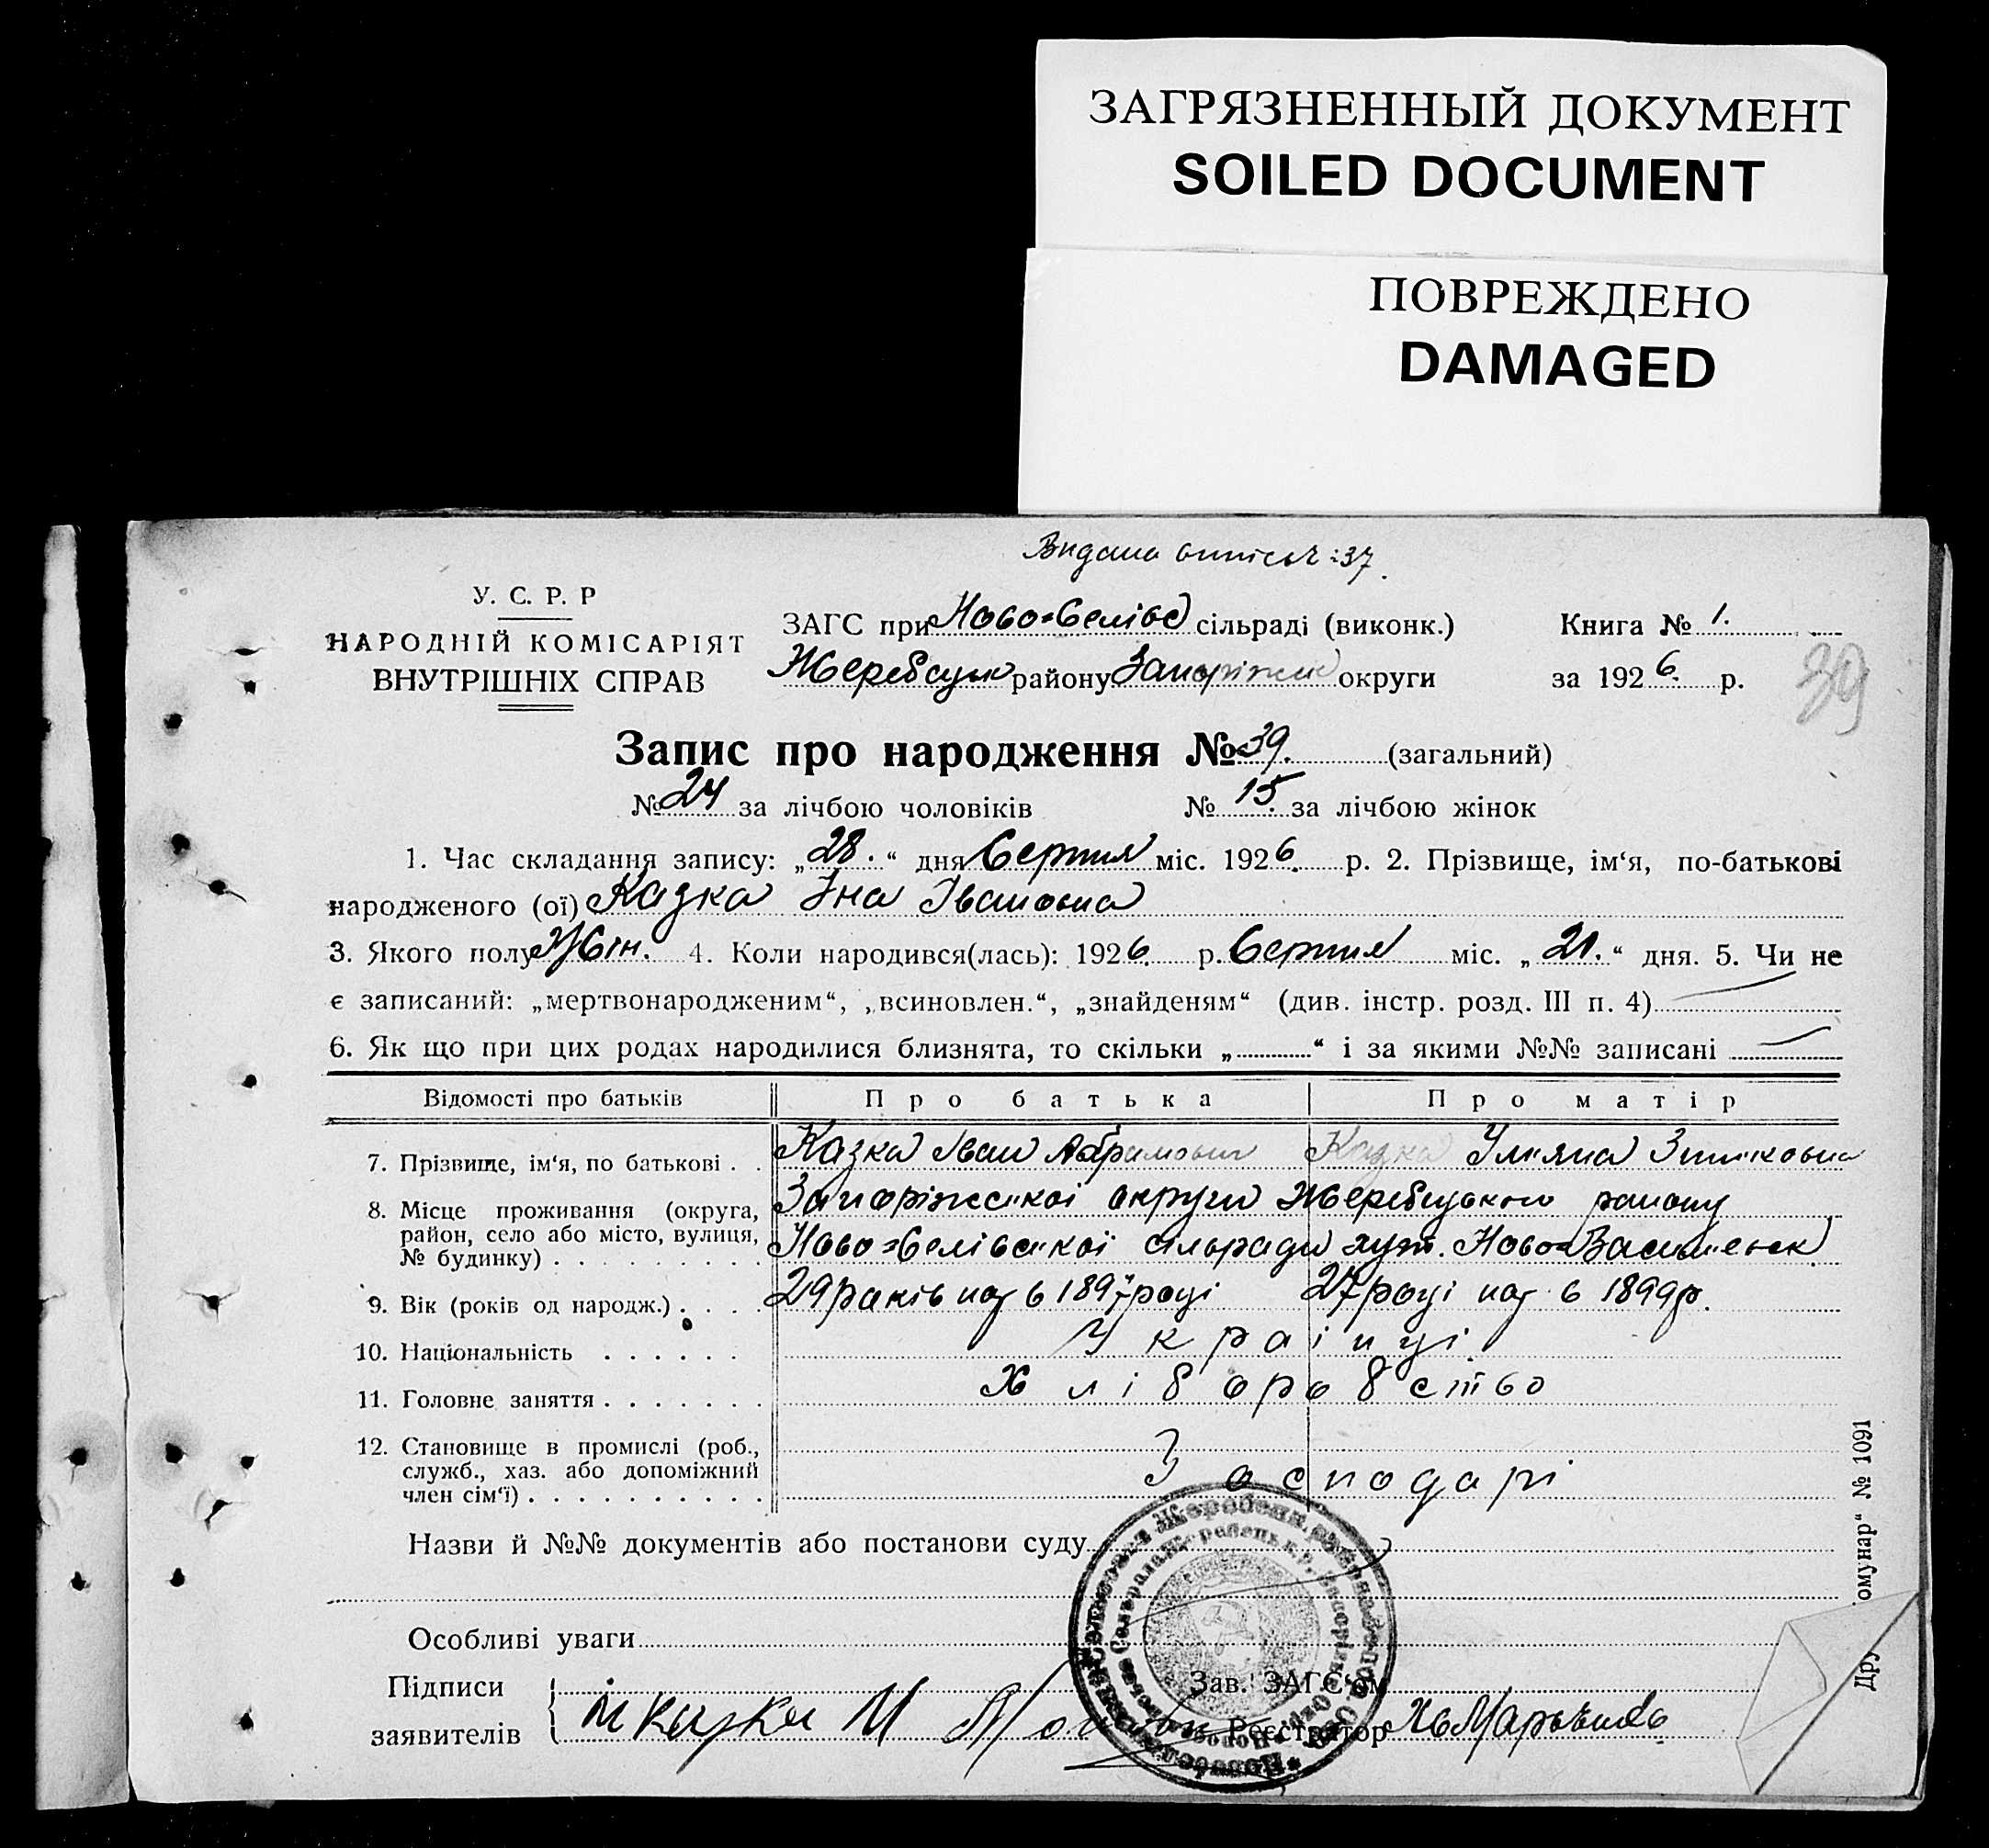 ЗАГРЯЗНЕННЫЙ ДОКУМЕНТ
SOILED DOCUMENT
ПОВРЕЖДЕНО
DAMAGED
Видана :37.
У. С. Р. Р
НАРОДНІЙ КОМІСАРІЯТ
ВНУТРІШНІХ СПРАВ
ЗАГС при Ново-Селівс сільраді (виконк.)
Жеребецьк району Запоріжськ округи
Книга № 1.
за 1926. р.
39
Запис про народження № 39. (загальний)
№ 24 за лічбою чоловіків № 15. за лічбою жінок
1. Час складання запису: „28.“ дня Серпня міс. 1926. р. 2. Прізвище, ім‘я, по-батькові
народженого (ої) Казка Іна Івановна
3. Якого полу Жін. 4. Коли народився(лась): 1926. р. Серпня міс. „21.“ дня. 5. Чи не
є записаний: „мертвонародженим“, „всиновлен.“, „знайденям“ (див. інстр. розд. III п. 4)
6. Як що при цих родах народилися близнята, то скільки „ “ і за якими №№ записані
Відомості про батьків Про батька Про матір
7. Прізвище, ім‘я, по батькові . . Казка Іван Абрамович Казка Уляна
8. Місце проживання (округа, Запоріжської округи Жеребецького району
район, село або місто, вулиця, Ново-Селівської сільради хут. Ново-Васильевск
№ будинку) . . . . . . . . .
9. Вік (років од народж.) . . . . 29 років нар в 1897 році 27 році нар в 1899 р.
10. Національність . . . . . . Українці.
11. Головне заняття . . . . . . . Хліборобство
12. Становище в промислі (роб.,
служб., хаз. або допоміжний
член сім‘ї) . . . . . . . . . . Господарі
Назви й №№ документів або постанови суду
Особливі уваги
Підписи
заявителів
Зав. ЗАГС‘ом
Реєстратор
омунар“ № 1091
Дру